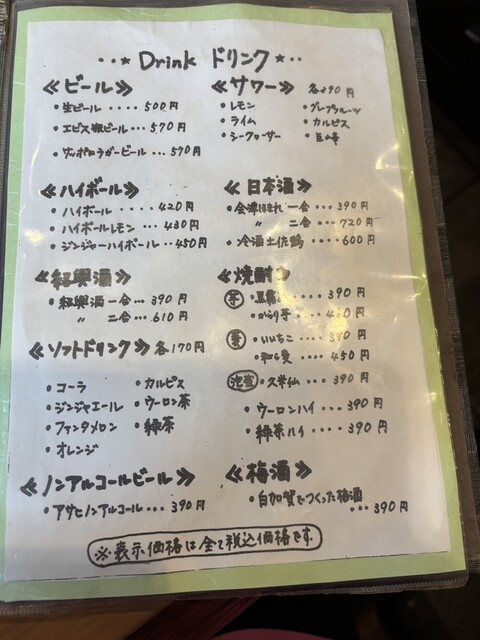 ･･･★ Drink ドリンク ★･･
≪ビール≫
・生ビール ････ 500円
・エビス瓶ビール ･･･ 570円
・サッポロラガービール ･･･ 570円
≪サワー≫ 各390円
・レモン
・ライム
・シークヮーサー
・グレープフルーツ
・カルピス
・巨峰
≪ハイボール≫
・ハイボール ････ 420円
・ハイボールレモン ･･･ 430円
・ジンジャーハイボール ･･ 450円
≪日本酒≫
・会津ほまれ 一合 ･･･ 390円
〃 二合 ･･･ 720円
・冷酒土佐鶴 ････ 600円
≪紹興酒≫
・紹興酒一合 ･･･ 390円
〃 二合 ･･･ 610円
≪焼酎≫
芋 ・黒霧 ････ 390円
・からり芋 ････ 460円
麦 ・いいちこ ････ 390円
・和ら麦 ････ 450円
泡盛 ・久米仙 ･･･ 390円
・ウーロンハイ ･･･ 390円
・緑茶ハイ ････ 390円
≪ソフトドリンク≫ 各170円
・コーラ
・ジンジャエール
・ファンタメロン
・オレンジ
・カルピス
・ウーロン茶
・緑茶
≪ノンアルコールビール≫
・アサヒノンアルコール ･･･ 390円
≪梅酒≫
・白加賀でつくった梅酒
･･･ 390円
※表示価格は全て税込価格です。